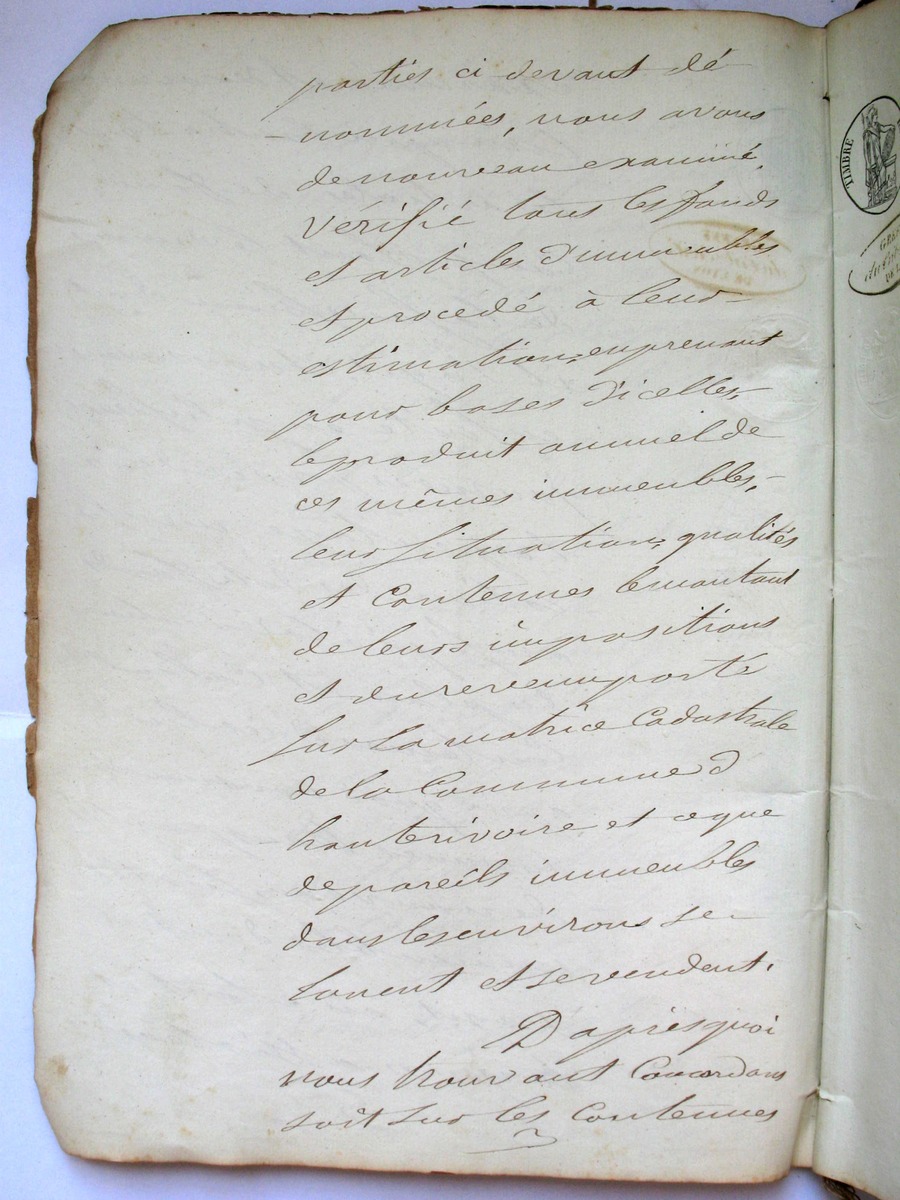 parties ci devant dé
nommées, nous avons
de nouveau examiné,
vérifié tous les fonds
et articles d'immeubles
et procédé à leur
estimation, en prenant
pour bases d'icelles,
le produit annuel de
ces mêmes immeubles,
leur situation, qualités
et contenues le montant
de leurs impositions
et du revenu porté
sur la matrice cadastrale
de la Commune d
hauterivoire et ce que
de pareils immeubles
dans les environs se
louent et se vendent.
D'après quoi
nous trouvant concordans
soit sur les contenues
TIMBRE